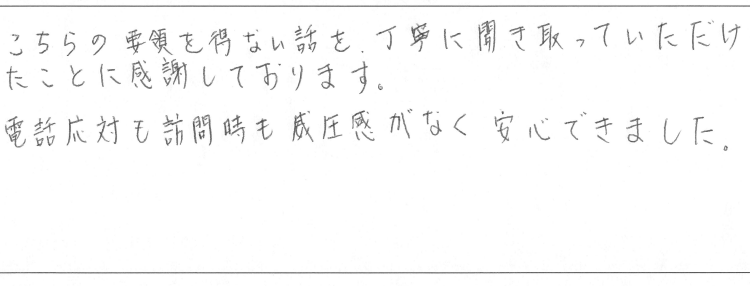 こちらの要領を得ない話を、丁寧に聞き取っていただけ
たことに感謝しております。
電話応対も訪問時も威圧感がなく安心できました。